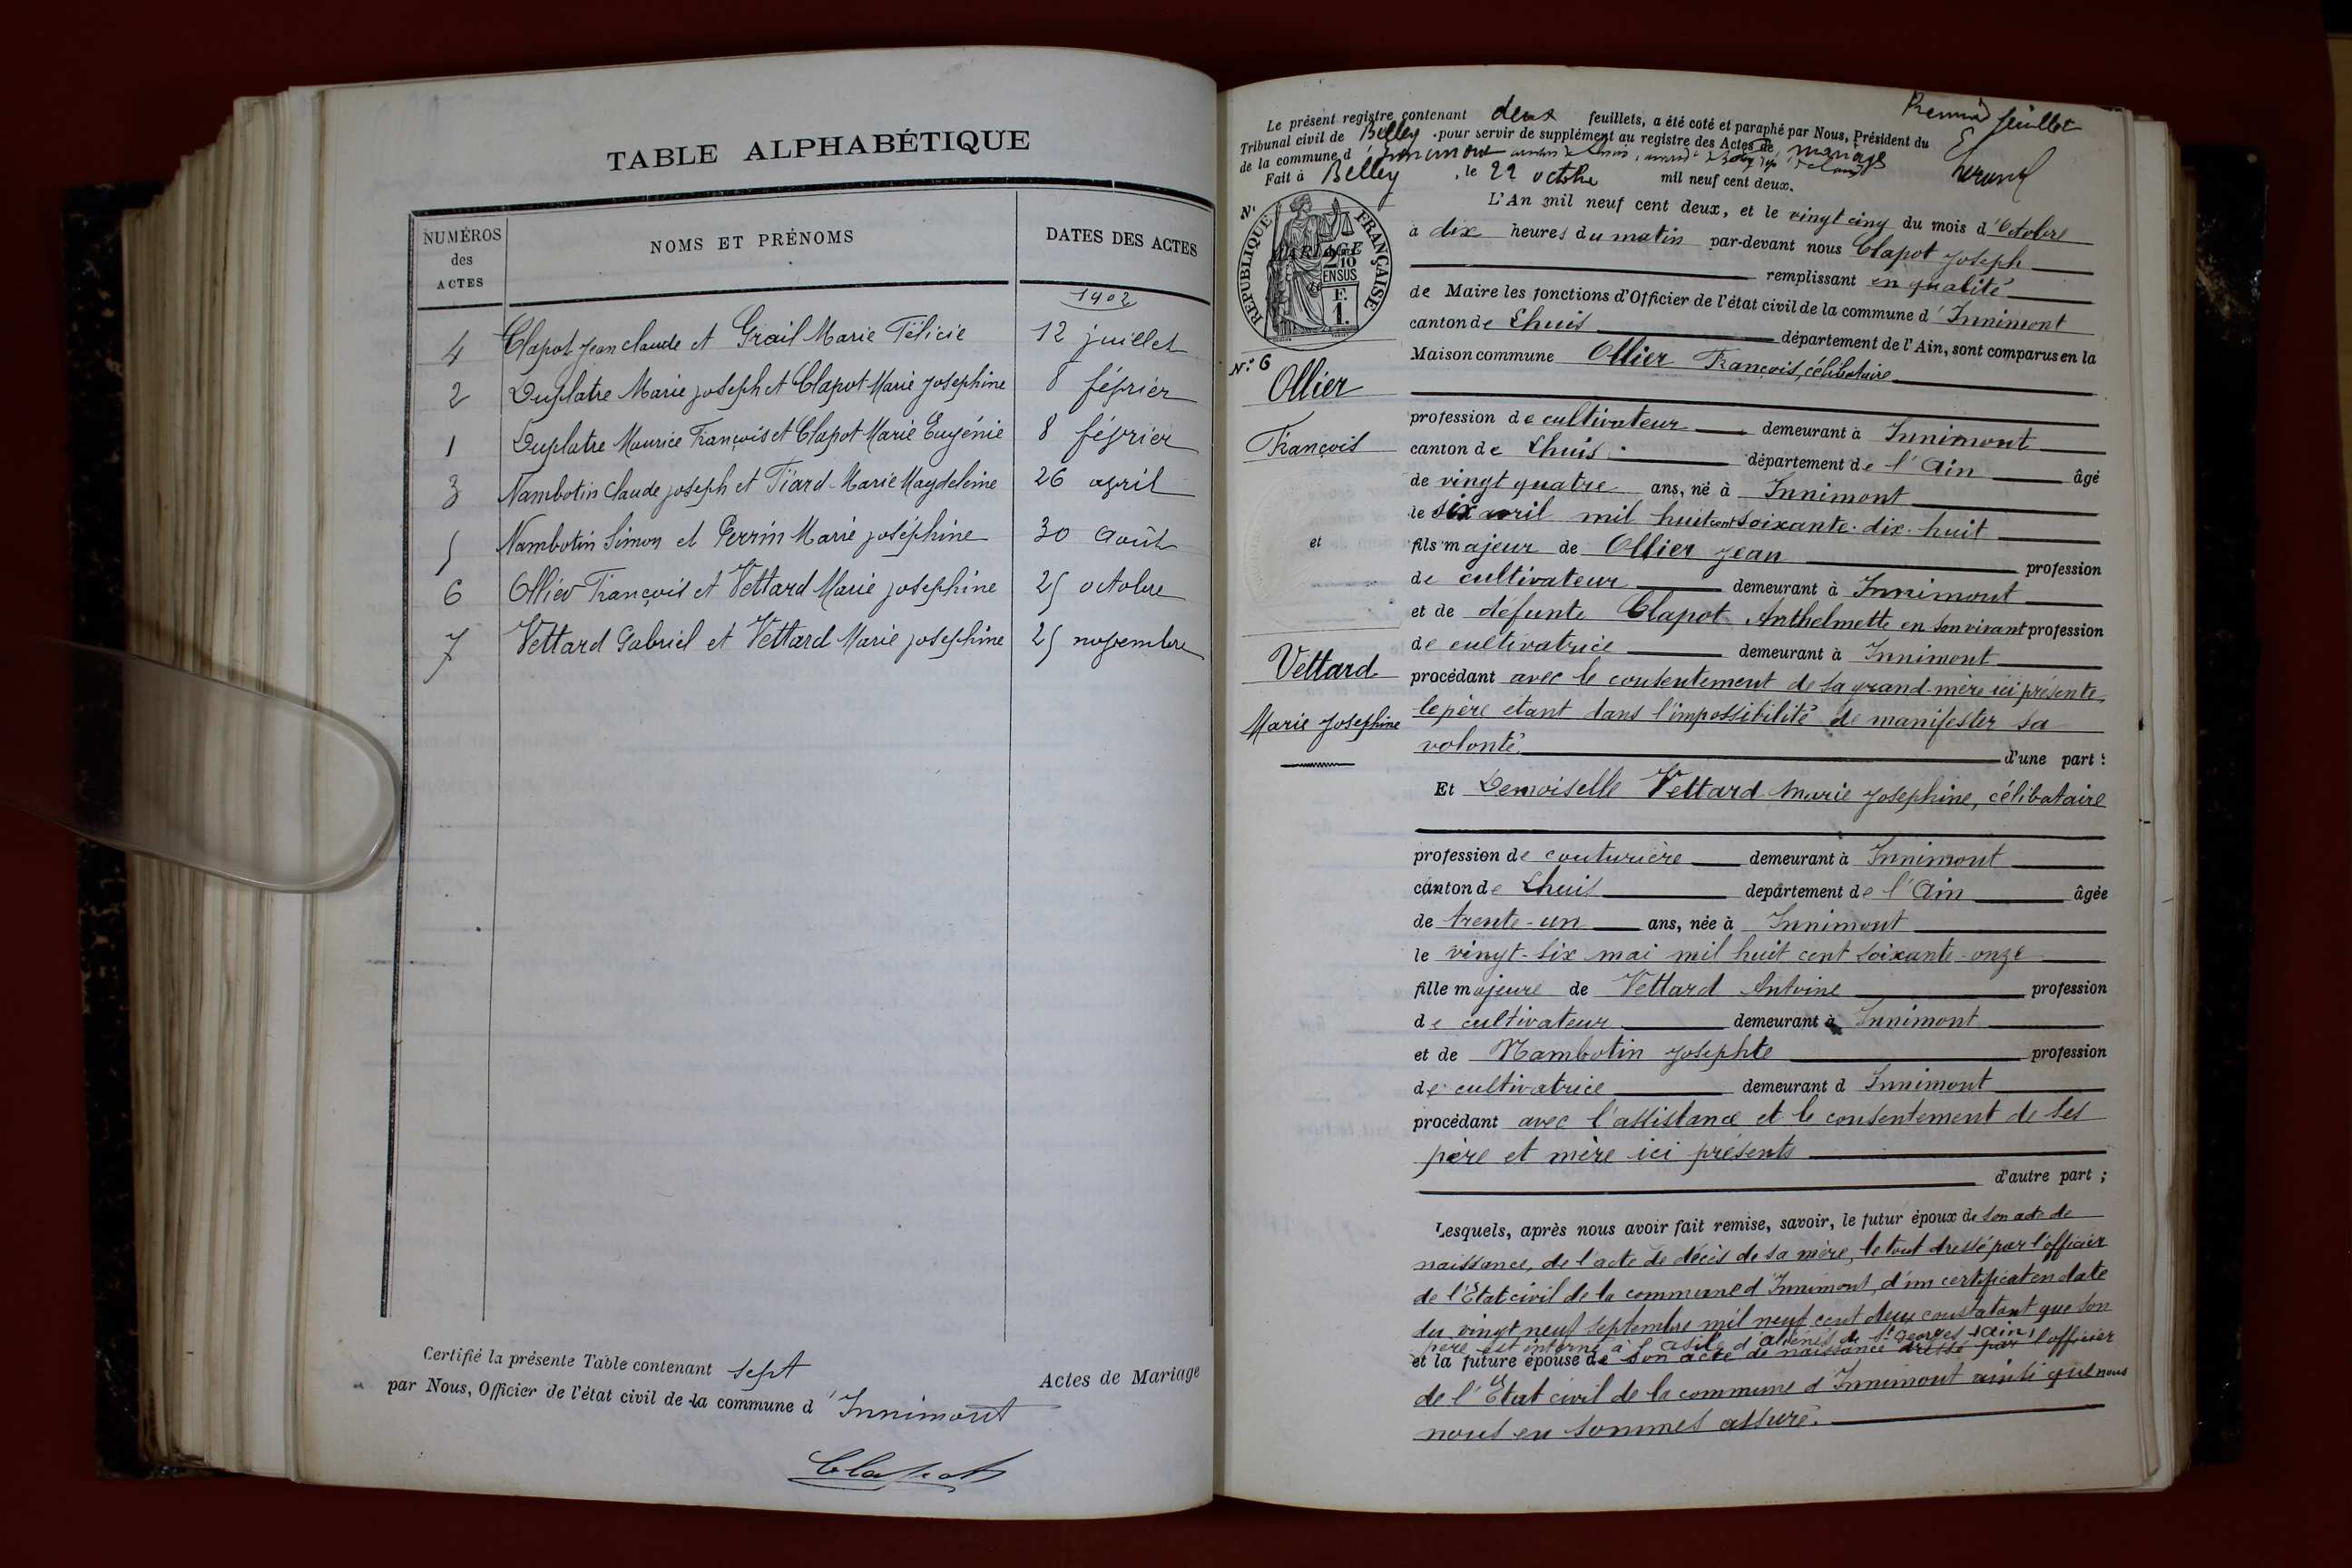 TABLE ALPHABÉTIQUE
NUMÉROS des ACTES
NOMS ET PRÉNOMS
DATES DES ACTES
1902
4 Clapot Jean claude et Grail Marie Félicie 12 juillet
2 Duplatre Marie joseph et Clapot Marie Josephine 8 février
1 Duplatre Maurice François et Clapot Marie Eugénie 8 février
3 Nambotin Claude joseph et Tiard Marie Magdeleine 26 avril
5 Nambotin Simon et Perrin Marie joséphine 30 Août
6 Ollier François et Vettard Marie josephine 25 octobre
7 Vettard Gabriel et Vettard Marie josephine 25 novembre
Certifié la présente Table contenant sept Actes de Mariage
par Nous, Officier de l'état civil de la commune d'Innimont
Clapot
Premier feuillet
Le présent registre contenant deux feuillets, a été coté et paraphé par Nous, Président du
Tribunal civil de Belley pour servir de supplément au registre des Actes de mariage
de la commune d'Innimont
Fait à Belley, le 22 octobre mil neuf cent deux.
N°
RÉPUBLIQUE FRANÇAISE
MARIAGE
2/10
EN SUS
1 F.
N° 6
Ollier
François
et
Vettard
Marie Josephine
L'An mil neuf cent deux, et le vingt cinq du mois d'Octobre
à dix heures du matin par-devant nous Clapot Joseph
remplissant en qualité
de Maire les fonctions d'Officier de l'état civil de la commune d'Innimont
canton de Lhuis département de l'Ain, sont comparus en la
Maison commune Ollier François, célibataire
profession de cultivateur demeurant à Innimont
canton de Lhuis département de l'Ain âgé
de vingt quatre ans, né à Innimont
le six avril mil huit cent soixante-dix-huit
fils majeur de Ollier Jean profession
de cultivateur demeurant à Innimont
et de défunte Clapot Anthelmette en son vivant profession
de cultivatrice demeurant à Innimont
procédant avec le consentement de sa grand-mère ici présente,
le père étant dans l'impossibilité de manifester sa
volonté. d'une part :
Et Demoiselle Vettard Marie Josephine, célibataire
profession de couturière demeurant à Innimont
canton de Lhuis département de l'Ain âgée
de trente-un ans, née à Innimont
le vingt-six mai mil huit cent soixante-onze
fille majeure de Vettard Antoine profession
de cultivateur demeurant à Innimont
et de Nambotin Josephte profession
de cultivatrice demeurant à Innimont
procédant avec l'assistance et le consentement de ses
père et mère ici présents
d'autre part ;
Lesquels, après nous avoir fait remise, savoir, le futur époux de son acte de
naissance, de l'acte de décès de sa mère, le tout dressé par l'officier
de l'Etat civil de la commune d'Innimont, d'un certificat en date
du vingt neuf septembre mil neuf cent deux constatant que son
père est interné à l'asile d'aliénés de St Georges (Ain)
et la future épouse de son acte de naissance dressé par l'officier
de l'Etat civil de la commune d'Innimont ainsi que nous
nous en sommes assuré.